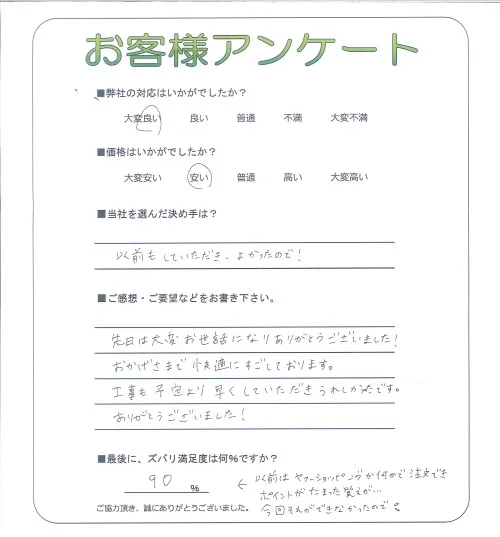 お客様アンケート
■弊社の対応はいかがでしたか？
大変良い 良い 普通 不満 大変不満
■価格はいかがでしたか？
大変安い 安い 普通 高い 大変高い
■当社を選んだ決め手は？
以前もしていただき、よかったので！
■ご感想・ご要望などをお書き下さい。
先日は大変お世話になりありがとうございました！
おかげさまで快適にすごしております。
工事も予定より早くしていただきうれしかったです。
ありがとうございました！
■最後に、ズバリ満足度は何％ですか？
90 %
← 以前はヤフーショッピングか何かで注文でき
ポイントがたまった覚えが…
今回それができなかったので
ご協力頂き、誠にありがとうございました。